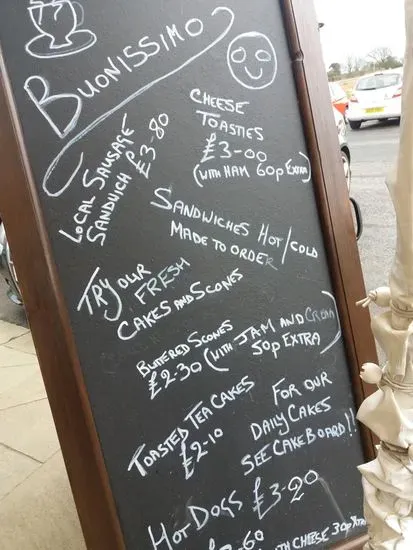 BUONISSIMO
LOCAL SAUSAGE
SANDWICH £3.80
CHEESE
TOASTIES
£3-00
(WITH HAM 60p EXTRA)
SANDWICHES HOT/COLD
MADE TO ORDER
TRY OUR FRESH
CAKES AND SCONES
BUTTERED SCONES
£2.30 (WITH JAM AND CREAM
50p EXTRA)
TOASTED TEA CAKES
£2-10
FOR OUR
DAILY CAKES
SEE CAKE BOARD!!
HOT DOGS £3-20
.60
WITH CHEESE 30p EXTRA